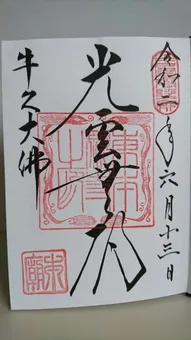 令和二年六月十三日
光雲無碍
牛久大佛